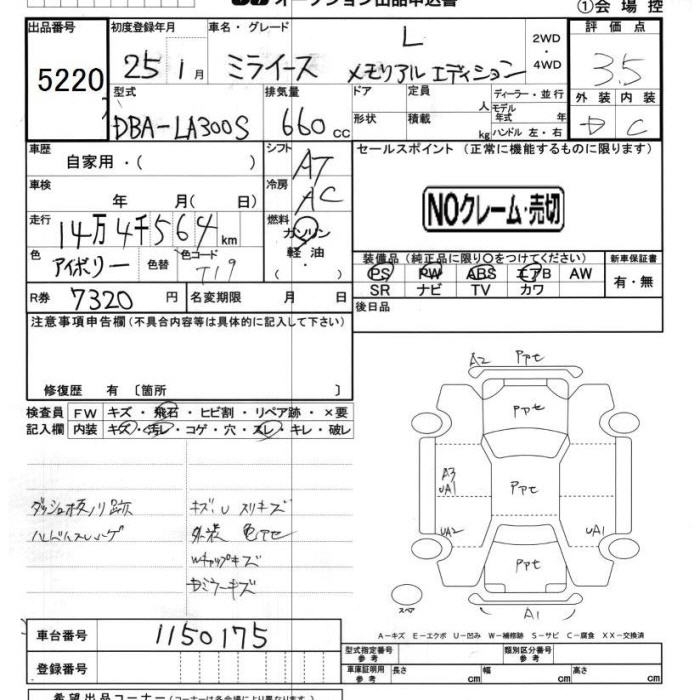 オークション出品申込書
①会場控
出品番号 初度登録年月 車名・グレード 評価点
5220 25 1月 ミライース L メモリアルエディション 2WD・4WD 3.5
型式 排気量 ドア 定員 人 ディーラー・並行 外装 内装
DBA-LA300S 660cc 形状 積載 kg モデル年式 年式 ハンドル 左・右 D C
車歴 シフト セールスポイント (正常に機能するものに限ります)
自家用・( ) AT
車検 年 月( 日) 冷房 AC
NOクレーム・売切
走行 14万4千564km 燃料 ガソリン・軽油・( )
色 アイボリー 色替 色コード T19
装備品 (純正品に限り○をつけてください) 新車保証書
PS PW ABS エアB AW 有・無
SR ナビ TV カワ
R券 7320円 名変期限 月 日 後日品
注意事項申告欄(不具合内容等は具体的に記入して下さい)
修復歴 有〔箇所 〕
検査員記入欄 FW キズ・飛石・ヒビ割・リペア跡・×要
内装 キズ・汚レ・コゲ・穴・スレ・キレ・破レ
A2 Pアセ
Pアセ
A3
UA1 Pアセ
UA2 UA1
Pアセ
スペア A1
キズ、U スリキズ
色アセ
Wチップキズ
ドミラーキズ
A-キズ E-エクボ U-凹み W-補修跡 S-サビ C-腐食 XX-交換済
車台番号 1150175 型式指定番号 参考 類別区分番号 参考
登録番号 車庫証明用 参考 長さ 幅 高さ
希望出品コーナー(コーナーは各会場によって異なります)